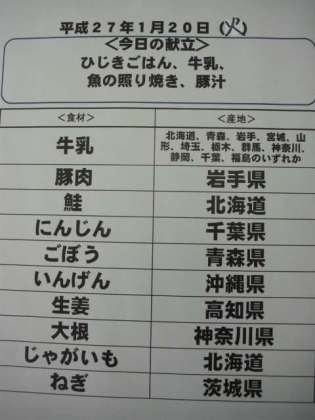 平成27年1月20日(火)
<今日の献立>
ひじきごはん、牛乳、
魚の照り焼き、豚汁
<食材> <産地>
牛乳 北海道、青森、岩手、宮城、山
形、埼玉、栃木、群馬、神奈川、
静岡、千葉、福島のいずれか
豚肉 岩手県
鮭 北海道
にんじん 千葉県
ごぼう 青森県
いんげん 沖縄県
生姜 高知県
大根 神奈川県
じゃがいも 北海道
ねぎ 茨城県